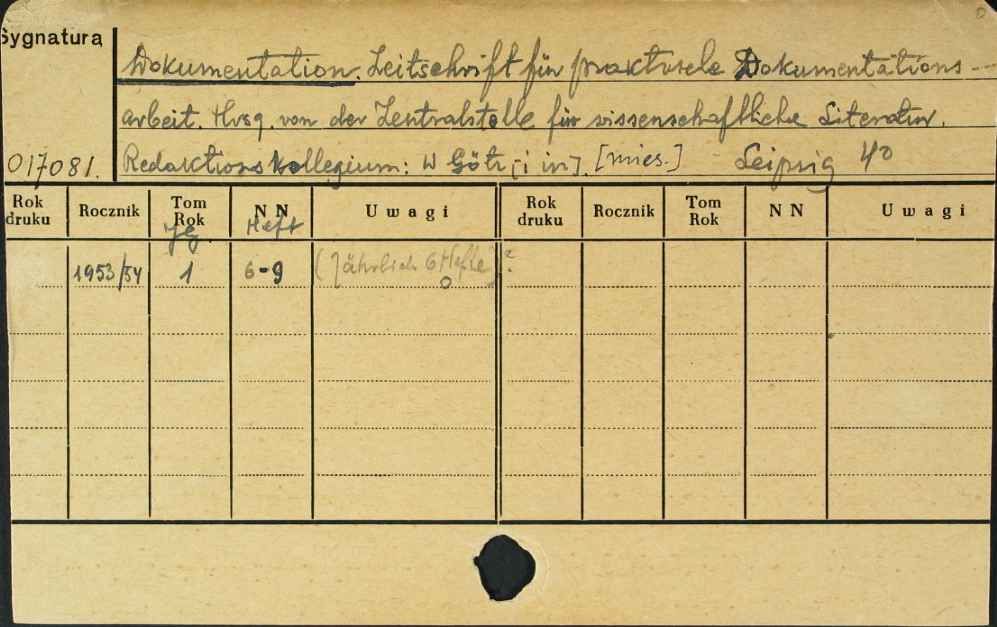 Sygnatura
Dokumentation. Zeitschrift für praktische Dokumentations-
arbeit. Hrsg. von der Zentralstelle für wissenschaftliche Literatur.
017081. Redaktionskollegium: W Götz [i in]. [mies.] Leipzig 4º
Rok druku Rocznik Tom Rok NN Uwagi Rok druku Rocznik Tom Rok NN Uwagi
Jg Heft
1953/54 1 6-9 (Jährlich 6 Hefte)